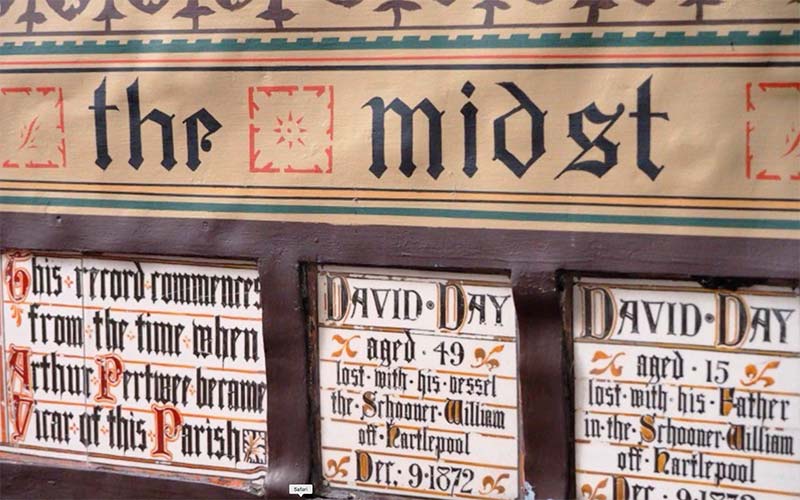 the midst
This record commences
from the time when
Arthur Pertwee became
Vicar of this Parish
DAVID DAY
aged · 49
lost · with · his · vessel
the · Schooner · William
off · Hartlepool
Dec. · 9 · 1872
DAVID · DAY
aged · 15
lost · with · his · Father
in · the · Schooner · William
off · Hartlepool
Safari